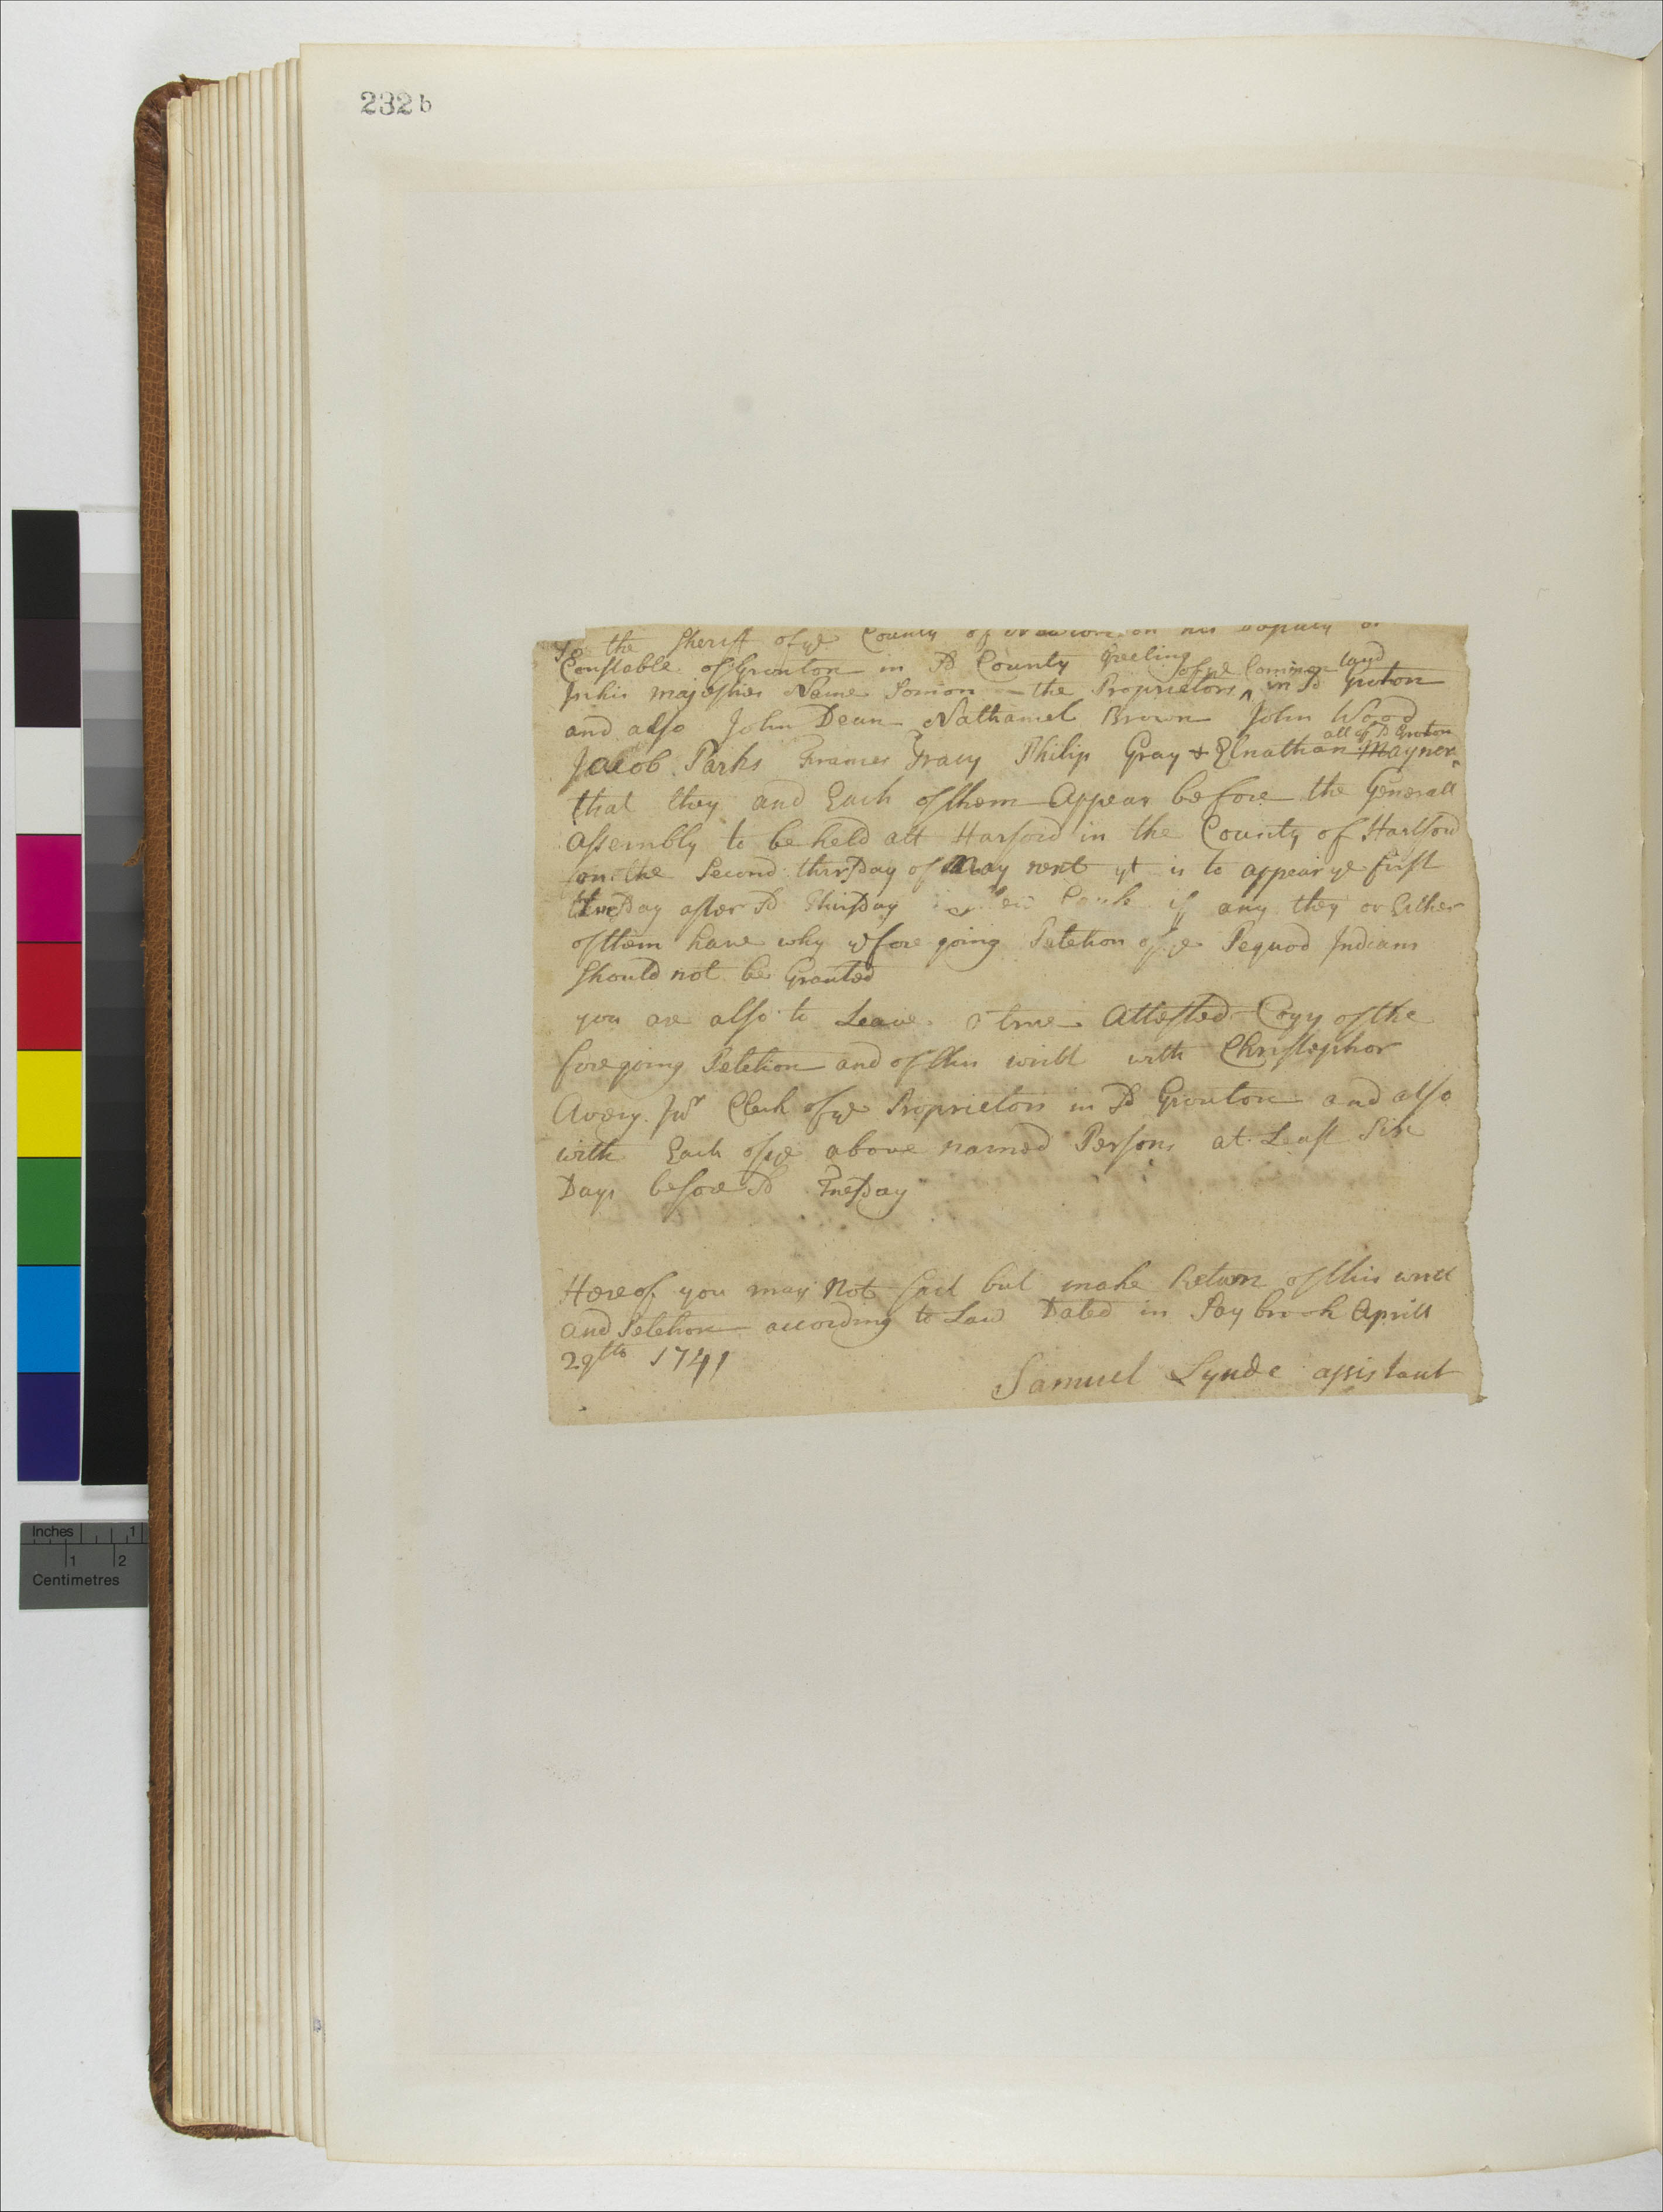 232b
To the Sheriff of ye County of his Deputy or
Constable of Grouton in sd County Greeling
In his majesties Name Somon the Proprietors ^ of ye Common land in sd Groton
and also John Dean Nathaniel Brown John Wood
Jacob Parks Frances Tracy Philip Gray + Elnathan Maynor ^ all of sd Groton
that they and Each of them Appear before the Generall
assembly to be held att Harford in the County of Hartford
on the Second thirsday of May next yt is to appear ye first
tuesday after sd Thirsday if any they or Either
of them have why ye fore going Petetion of ye Pequod Indians
should not be Granted
you are also to Leave a true Attested Coyy of the
foregoing Petetion and of this writt with Christophor
Avery Jur Clerk of ye Proprietors in sd Grouton and also
with Each of ye above named Persons at Least Six
Days before sd Tuesday
Hereof you may Not fail but make Return of this writt
and Petetion according to Law Dated in Saybrook Aprill
29th 1741
Samuel Lynde assistant
Inches 1
1 2
Centimetres